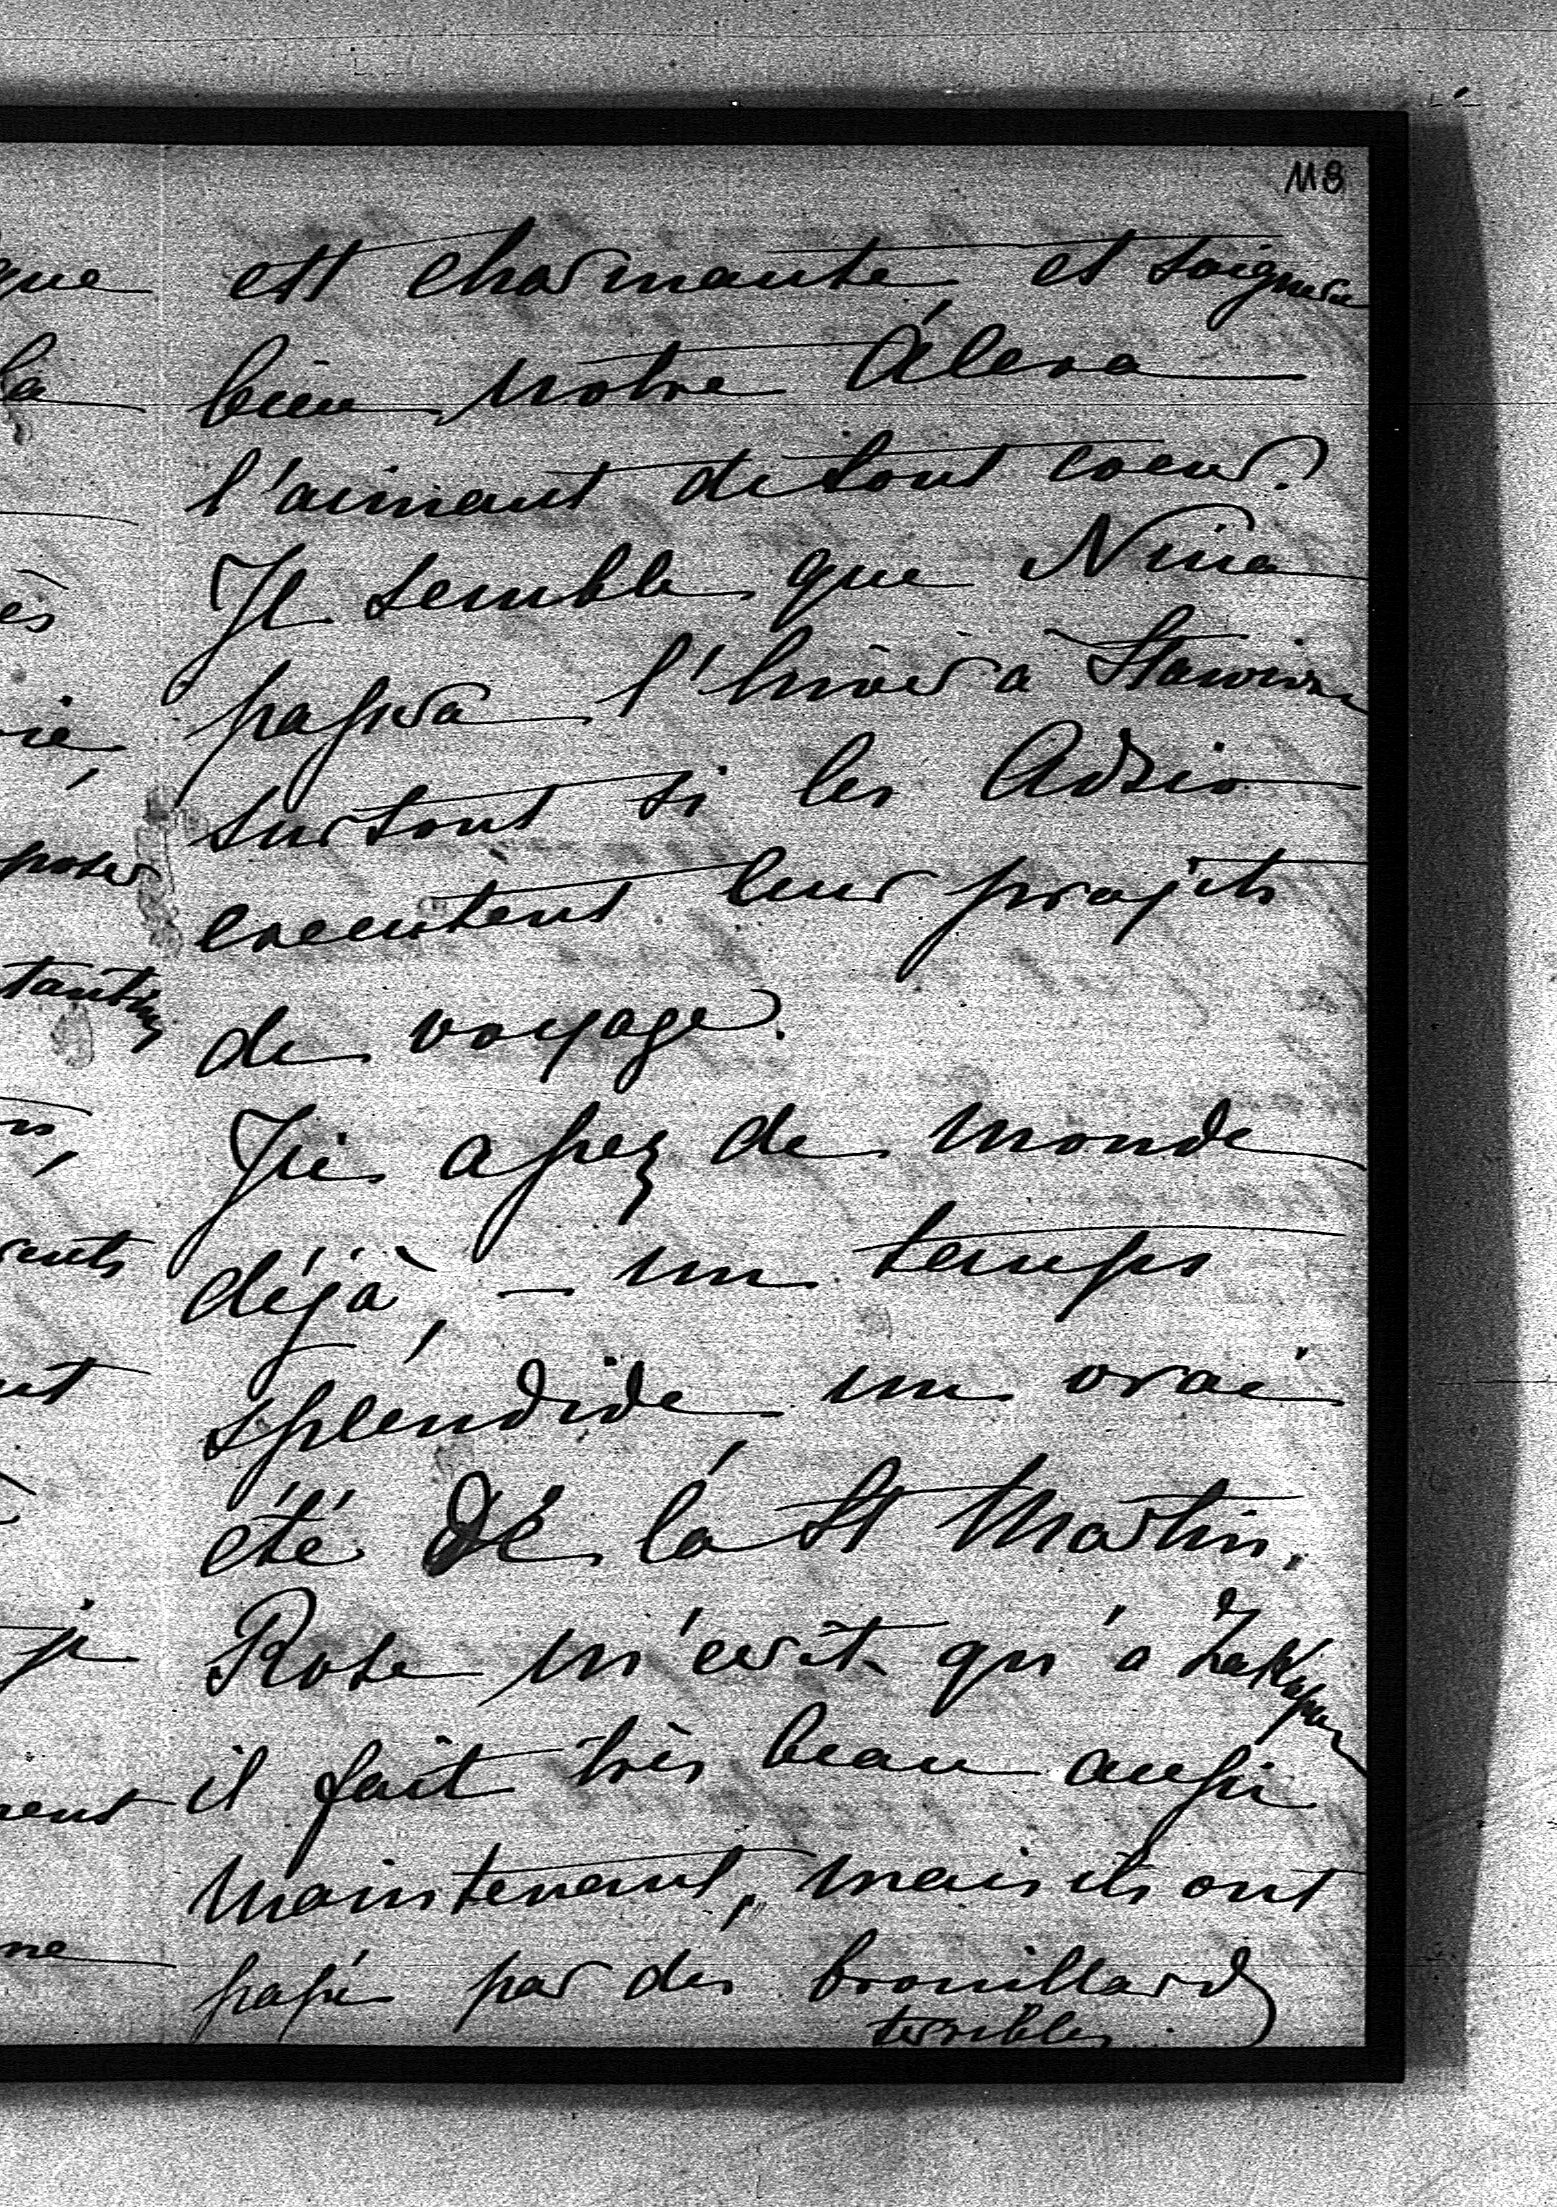 118
que
la
ès
rié,
poser
tantin
ns,
rents
nt
je
nent
ne
est charmante et soignera
bien notre Álera
l'aimant de tout coeur.
Il semble que Nina
passera l'hiver a Stawiska
surtout si les Adzio
executent leur projets
de voyage.
Ici assez de monde
déjà, – un temps
splendide un vrai
été de la St Martin.
Rose m'ecrit qu'a Zakopane
il fait très beau aussi
maintenant, mais ils ont
passé par des brouillards
terribles.